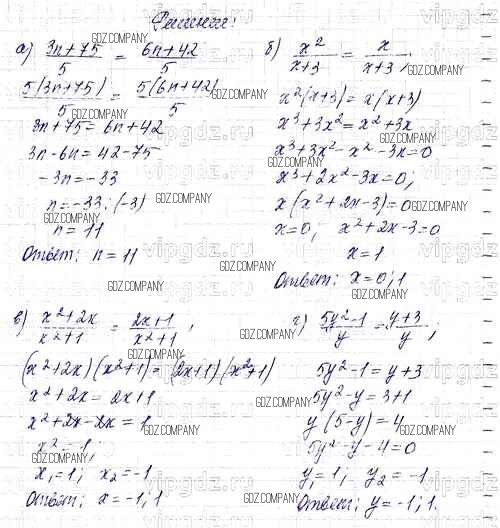 Решение:
а) 3n+75/5 = 6n+42/5
5(3n+75)/5 = 5(6n+42)/5
3n+75=6n+42
3n-6n=42-75
-3n=-33
n=-33:(-3)
n=11
Ответ: n=11
б) x²/x+3 = x/x+3;
x²(x+3)=x(x+3)
x³+3x²=x²+3x
x³+3x²-x²-3x=0
x³+2x²-3x=0;
x(x²+2x-3)=0
x=0; x²+2x-3=0
x=1
Ответ: x=0;1
в) x²+2x/x²+1 = 2x+1/x²+1;
(x²+2x)(x²+1)=(2x+1)(x²+1)
x²+2x=2x+1
x²+2x-2x=1
x²=1,
x₁=1; x₂=-1
Ответ: x=-1;1
г) 5y²-1/y = y+3/y;
5y²-1=y+3
5y²-y=3+1
y(5-y)=4
5y²-y-4=0
y₁=1; y₂=-1
Ответ: y=-1;1.
GDZ.COMPANY
vipgdz.ru